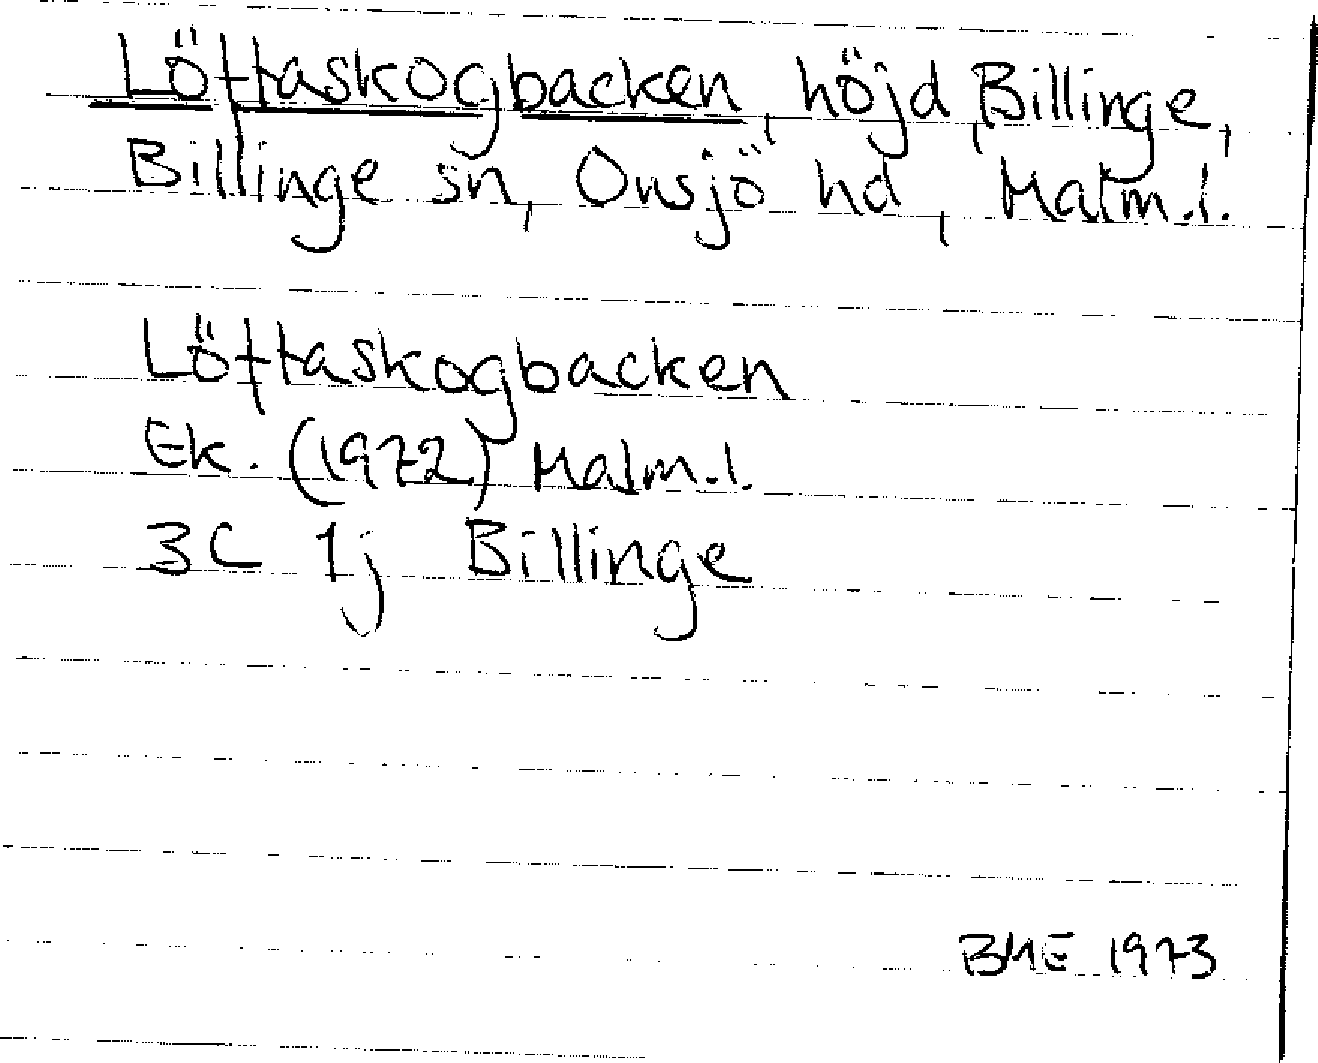 Löftaskogbacken, höjd, Billinge,
Billinge sn, Onsjö hd, Malm.l.
Löftaskogbacken
Ek. (1972) Malm.l.
3C 1j Billinge
BME 1973